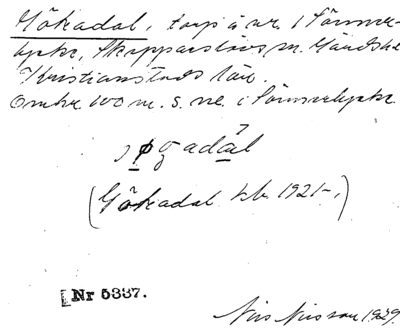 Gökadal, torp å nr. 1 Sönner-
lycke, Skepparslövs sn. Gärds hd.
Kristianstads län.
Omkr. 600 m. s. ne. i Sönnerlycke.
ɟøgadàl
(Gökadal kb. 1921–,)
[Nr 5337.
Nils Nilsson 1929.